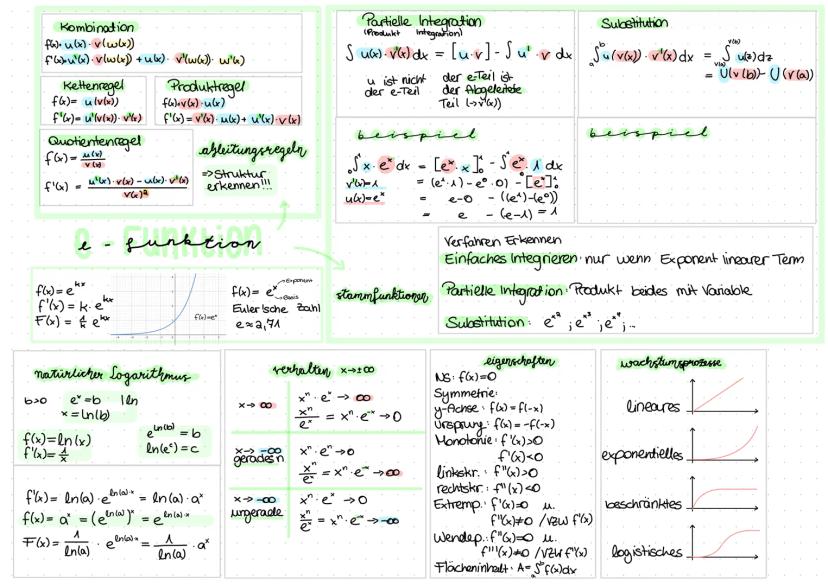 Kombination
f(x)= u(x) · v(w(x))
f'(x)=u'(x) · v(w(x)) + u(x) · v'(w(x)) · w'(x)
Kettenregel
f(x)= u(v(x))
f'(x)= u'(v(x)) · v'(x)
Produktregel
f(x)=v(x)·u(x)
f'(x)= v'(x)·u(x)+u'(x)·v(x)
Quotientenregel
f(x)= u(x)/v(x)
f'(x) = u'(x) · v(x) - u(x) · v'(x)
v(x)²
ableitungsregeln
=> Struktur
erkennen!!!
e - funktion
f(x)= e^kx
f'(x)= k · e^kx
F(x) = 1/k e^kx
f(x)=e^x
f(x)= e^x
Exponent
Basis
Euler'sche Zahl
e≈2,71
Partielle Integration
(Produkt Integration)
∫ u(x) · v'(x) dx = [u·v] - ∫ u' · v dx
u ist nicht
der e-Teil
der e-Teil ist
der Abgeleitete
Teil (→v'(x))
Substitution
∫ₐᵇ u(v(x)) · v'(x) dx = ∫ u(z) dz
v(b)
v(a)
= U(v(b)) - U(v(a))
beispiel
₀∫¹ x · e^x dx = [e^x · x]₀¹ - ₀∫¹ e^x · 1 dx
v'(x)=1 = (e¹·1) - e⁰·0) - [e^x]₀¹
u(x)=e^x = e-0 - ((e¹)-(e⁰))
= e - (e-1) = 1
beispiel
stammfunktionen
Verfahren Erkennen
Einfaches Integrieren: nur wenn Exponent linearer Term
Partielle Integration: Produkt beides mit Variable
Substitution: e^x² ; e^x³ ; e^x⁴ ; ...
natürlicher Logarithmus
b>0 e^x=b |ln
x=ln(b)
f(x)=ln(x)
f'(x)= 1/x
e^ln(b) = b
ln(e^c) = c
f'(x)= ln(a) · e^ln(a)·x = ln(a) · a^x
f(x)= a^x = (e^ln(a))^x = e^ln(a)·x
F(x)= 1/ln(a) · e^ln(a)·x = 1/ln(a) · a^x
verhalten x→±∞
x→ ∞
x^n · e^x → ∞
x^n/e^x = x^n · e^-x → 0
x→ -∞
gerades n
x^n · e^x → 0
x^n/e^x = x^n · e^-x → ∞
x→ -∞
ungerade
x^n · e^x → 0
x^n/e^x = x^n · e^-x → -∞
eigenschaften
NS: f(x)=0
Symmetrie:
y-Achse: f(x) = f(-x)
Ursprung: f(x) = -f(-x)
Monotonie: f'(x)>0
f'(x)<0
linkskr.: f''(x)>0
rechtskr.: f''(x)<0
Extremp.: f'(x)=0 u.
f''(x)≠0 /VZW f'(x)
Wendep.: f''(x)=0 u.
f'''(x)≠0 /VZW f''(x)
Flächeninhalt: A= ₐ∫ᵇ f(x)dx
wachstumsprozesse
lineares
exponentielles
beschränktes
logistisches